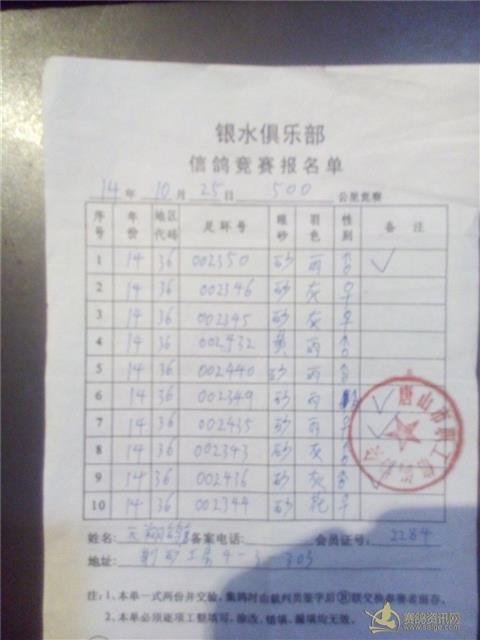 银水俱乐部
信鸽竞赛报名单
14年10月25日 500 公里竞赛
序号 年份 地区代码 足环号 眼砂 羽色 性别 备注
1 14 36 002350 砂 雨 ✓
2 14 36 002346 砂 灰 ♀
3 14 36 002345 砂 灰 ♀
4 14 36 002432 黄 雨
5 14 36 002440 砂 雨
6 14 36 002349 砂 雨 ✓
7 14 36 002435 砂 雨 ✓
8 14 36 002343 砂 灰
9 14 36 002436 砂 灰 ✓
10 14 36 002344 砂 花 ♀
唐山市 工信鸽
姓名: 天翔鸽 备案电话: 会员证号: 2284
地址: 4-3-303
注: 1、本单一式两份并交验, 集鸽时由裁判员签字后 联交参赛者留存。
2、本单必须逐项工整填写, 涂改、错填、漏填均无效。
赛鸽资讯网
www.saige.com